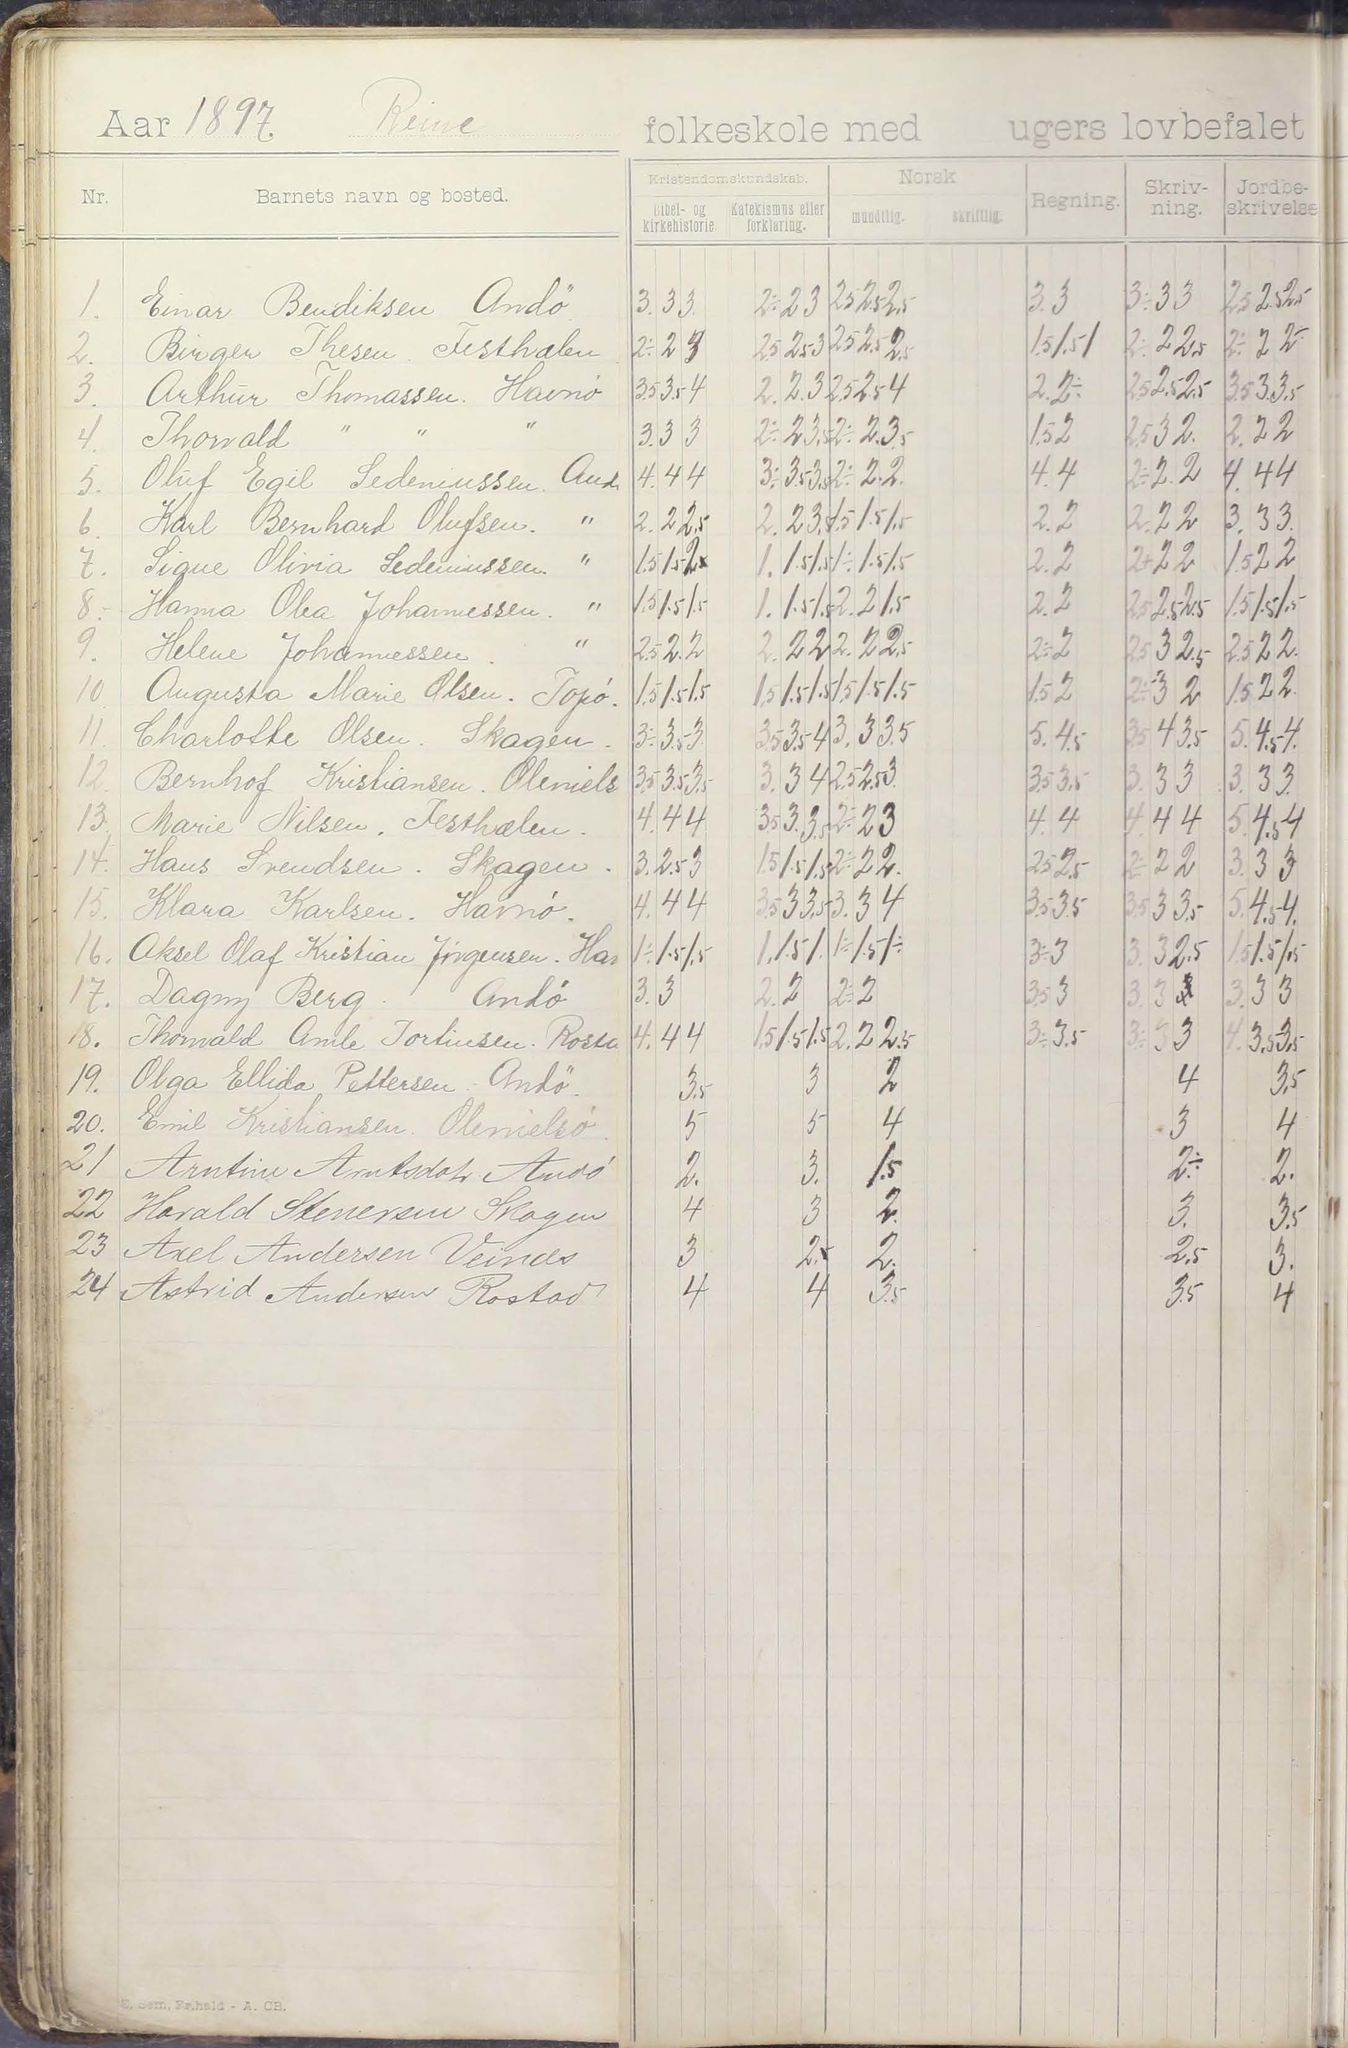 Aar 1897. Reine folkeskole med ugers lovbefalet
Nr. Barnets navn og bosted. Kristendomskundskab. Norsk Regning. Skriv- Jordbe-
Bibel- og Katekismus eller mundtlig. skriftlig. ning. skrivelse
kirkehistorie forklaring.
1. Einar Bendiksen Andö 3. 3 3 2÷ 2 3 2.5 2.5 2.5 3. 3 3÷ 3 3 2.5 2.5 2.5
2. Birger Thesen. Festhælen 2÷ 2 3 2.5 2.5 3 2.5 2.5 2.5 1.5 1.5 1 2÷ 2 2.5 2÷ 2 2÷
3. Arthur Thomassen. Havnö 3.5 3.5 4 2. 2 3 2.5 2.5 4 2. 2÷ 2.5 2.5 2.5 3.5 3 3.5
4. Thorvald " " " 3. 3 3 2÷ 2 3.5 2÷ 2. 3.5 1.5 2 2.5 3 2. 2. 2 2
5. Oluf Egil Sedeniussen. And 4. 4 4 3÷ 3.5 3.5 2÷ 2. 2. 4. 4 2÷ 2. 2 4. 4 4
6. Karl Bernhard Olufsen. " 2. 2 2.5 2. 2 3.5 1.5 1.5 1.5 2. 2 2. 2 2 3. 3 3.
7. Signe Olivia Sedeniussen. " 1.5 1.5 2. 1. 1.5 1.5 1÷ 1.5 1.5 2. 2 2+ 2 2 1.5 2 2
8. Hanna Olea Johannessen. " 1.5 1.5 1.5 1. 1.5 1.5 2. 2 1.5 2. 2 2.5 2.5 2.5 1.5 1.5 1.5
9. Helene Johannessen. " 2.5 2. 2 2. 2 2 2. 2 2.5 2÷ 2 2.5 3 2.5 2.5 2 2.
10 Augusta Marie Olsen. Topö. 1.5 1.5 1.5 1.5 1.5 1.5 1.5 1.5 1.5 1.5 2 2÷ 3 2 1.5 2 2.
11. Charlotte Olsen. Skagen. 3÷ 3.5 3 3.5 3.5 4 3. 3 3.5 5. 4.5 3.5 4 3.5 5. 4.5 4.
12. Bernhof Kristiansen. Oleniels 3.5 3.5 3.5 3. 3 4 2.5 2.5 3 3.5 3.5 3. 3 3 3. 3 3.
13. Marie Nilsen. Festhælen. 4. 4 4 3.5 3. 3.5 2÷ 2 3 4. 4 4. 4 4 5. 4.5 4
14. Hans Svendsen. Skagen. 3. 2.5 3 1.5 1.5 1.5 2÷ 2 2. 2.5 2.5 2÷ 2 2 3. 3 3
15. Klara Karlsen. Havnö. 4. 4 4 3.5 3 3.5 3. 3 4 3.5 3.5 3.5 3 3.5 5. 4.5 4.
16. Aksel Olaf Kristian Jörgensen. Hav 1÷ 1.5 1.5 1. 1.5 1. 1÷ 1.5 1÷ 3÷ 3 3. 3 2.5 1.5 1.5 1.5
17. Dagny Berg. Andö 3. 3 2. 2 2÷ 2 3.5 3 3. 3 3. 3 3
18. Thorvald Amle Tortinsen. Rosta 4. 4 4 1.5 1.5 1.5 2. 2 2.5 3÷ 3.5 3÷ 3 3 4. 3.5 3.5
19. Olga Ellida Pettersen - Andö. 3.5 3 2 4 3.5
20. Emil Kristiansen. Olenielsö. 5 5 4 3 4
21 Arntine Arntsdatr Andö 2. 3. 1.5 2÷ 2.
22 Harald Stenersen Skagen 4 3 2. 3. 3.5
23 Axel Andersen Veines 3 2.5 2. 2.5 3.
24 Astrid Andersen Rostad 4 4 3.5 3.5 4